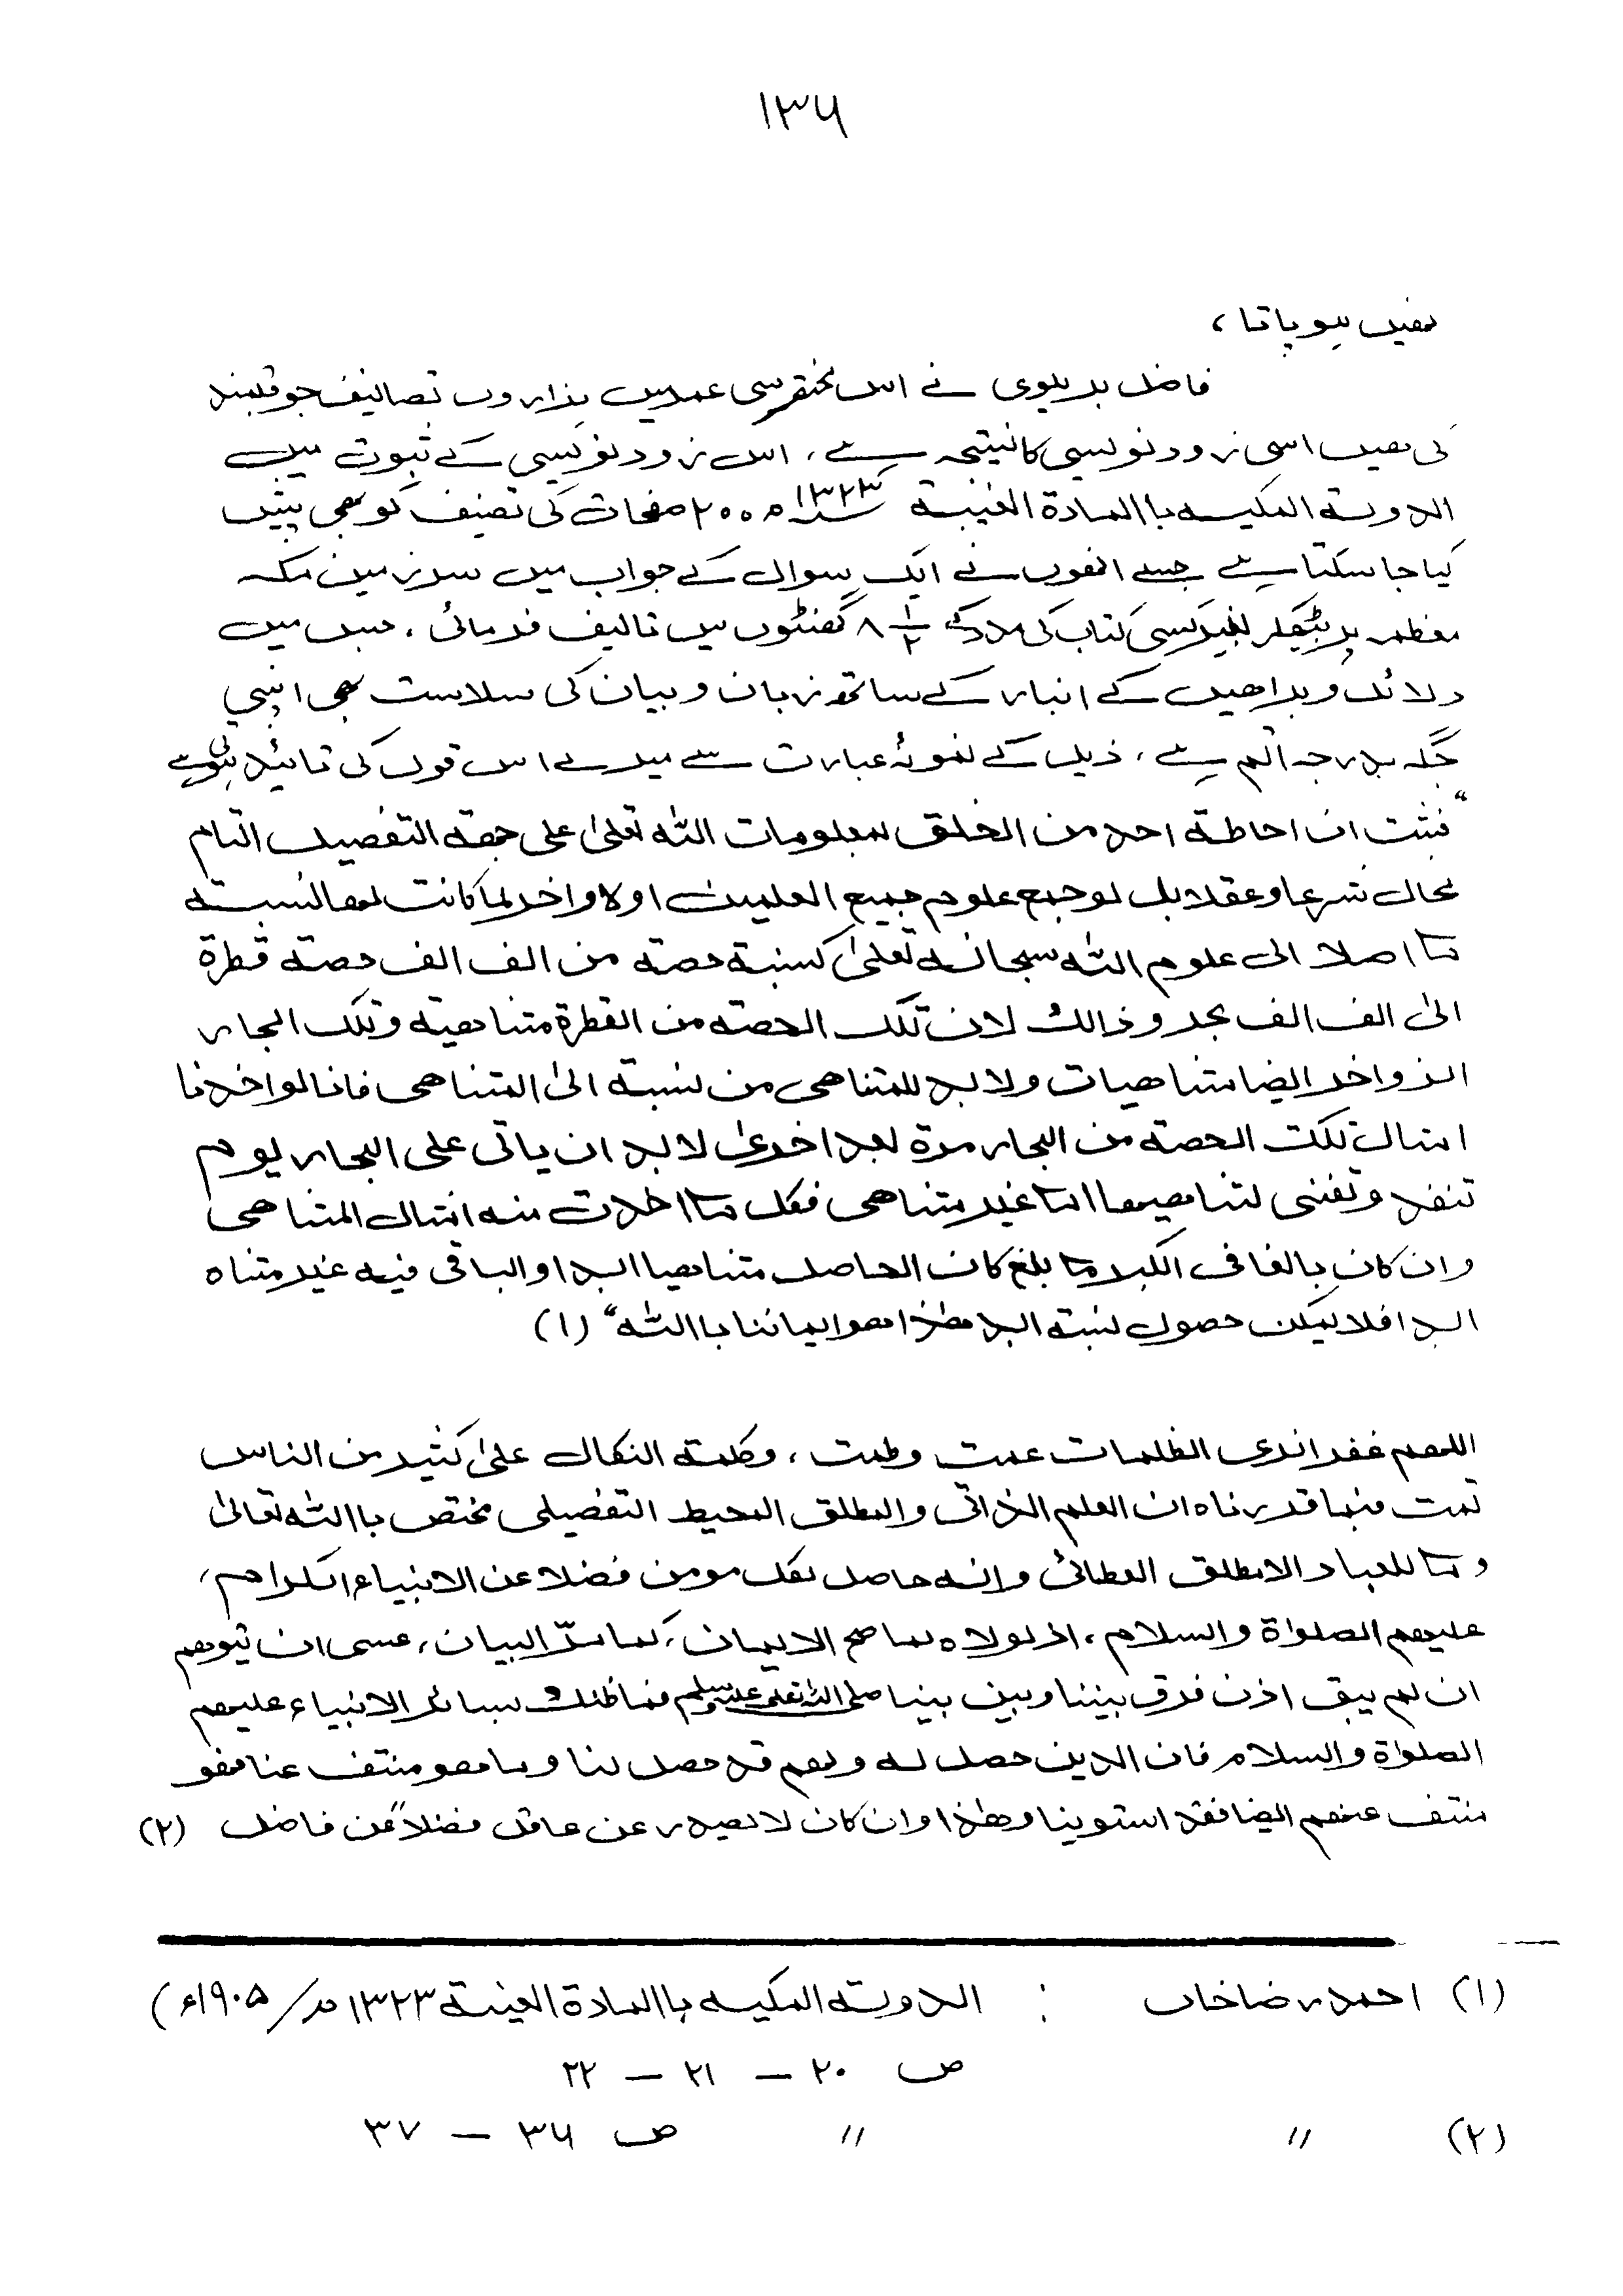 ۱۳۶
نھیں ہو پاتا ،
فاضل بریلوی نے اس مختصر سی عمر میں ہزاروں تصانیف جو قلمبند
کی ھیں اسی زود نویسی کا نتیجہ ہے ، اس زود نویسی کے ثبوت میں
الدولۃ المکیہ باالمادۃ الغیبۃ ۱۳۲۳ھ ۲۰۰ صفحات کی تصنیف کو بھی پیش
کیا جا سکتا ہے جسے انھوں نے ایک سوال کے جواب میں سرزمین مکہ
معظمہ پر بیٹھکر بغیر کسی کتاب کی مدد کے ۸ ۱/۲ گھنٹوں میں تالیف فرمائی ، جس میں
دلائل و براھین کے انبار کے ساتھ زبان و بیان کی سلاست بھی اپنی
جگہ بدرجہ اتم ہے ، ذیل کے نمونۂ عبارت سے میرے اس قول کی تائید ہوتی ہے
“فثبت ان احاطۃ احد من الخلق بمعلومات اللہ تعلیٰ علی جھۃ التفصیل التام
محال شرعا و عقلا بل لو جمع علوم جمیع العلمین اولا و اخر لما کانت لھا نسبۃ
ما اصلا الی علوم اللہ سبحانہ تعلیٰ کنسبۃ حصۃ من الف الف حصۃ قطرۃ
الیٰ الف الف بحر و ذالک لان تلک الحصۃ من القطرۃ متناھیۃ و تلک البحار
الزواخر ایضا متناھیات ولا بد للمتناھی من نسبۃ الیٰ المتناھی فانا لو اخذنا
امثال تلک الحصۃ من البحار مرۃ بعد اخریٰ لا بد ان یاتی علی البحار یوم
تنفد و تفنی لتناھیھا اما غیر متناھی فکل ما اخذت منہ امثال المتناھی
وان کان بالغا فی الکبر ما بلغ کان الحاصل متناھیا ابدا و الباقی فیہ غیر متناہ
ابدا فلا یمکن حصول نسبۃ ابدا ھٰذا ھو ایماننا باللہ“ (۱)
اللھم غفرا نری الظلمات عمت وطمت ، وکلمۃ النکال علیٰ کثیر من الناس
تمت فبما قررناہ ان العلم الذاتی و المطلق المحیط التفصیلی مختص باللہ تعالیٰ
وما للعباد الا مطلق العطائی وانہ حاصل لکل مومن فضلا عن الانبیاء الکرام ،
علیھم الصلواۃ و السلام ، اذ لولاہ لما صح الایمان ، کما مرّ البیان ، عسی ان تیوھم
ان لم یبق اذن فرق بیننا و بین نبینا صلی اللہ تعلی علیہ وسلم فما ظنک بسائر الانبیاء علیھم
الصلواۃ و السلام فان الدین حصل لہ ولھم قد حصل لنا وما ھو منتف عنا فھو
منتف عنھم ایضا فقد استوینا و ھٰذا وان کان لا یصدر عن عاقل فضلاً عن فاضل (۲)
(۱) احمد رضا خاں : الدولۃ المکیہ باالمادۃ الغیبۃ ۱۳۲۳ھ/۱۹۰۵ء)
ص ۲۰ – ۲۱ – ۲۲
(۲) // // ص ۳۶ – ۳۷